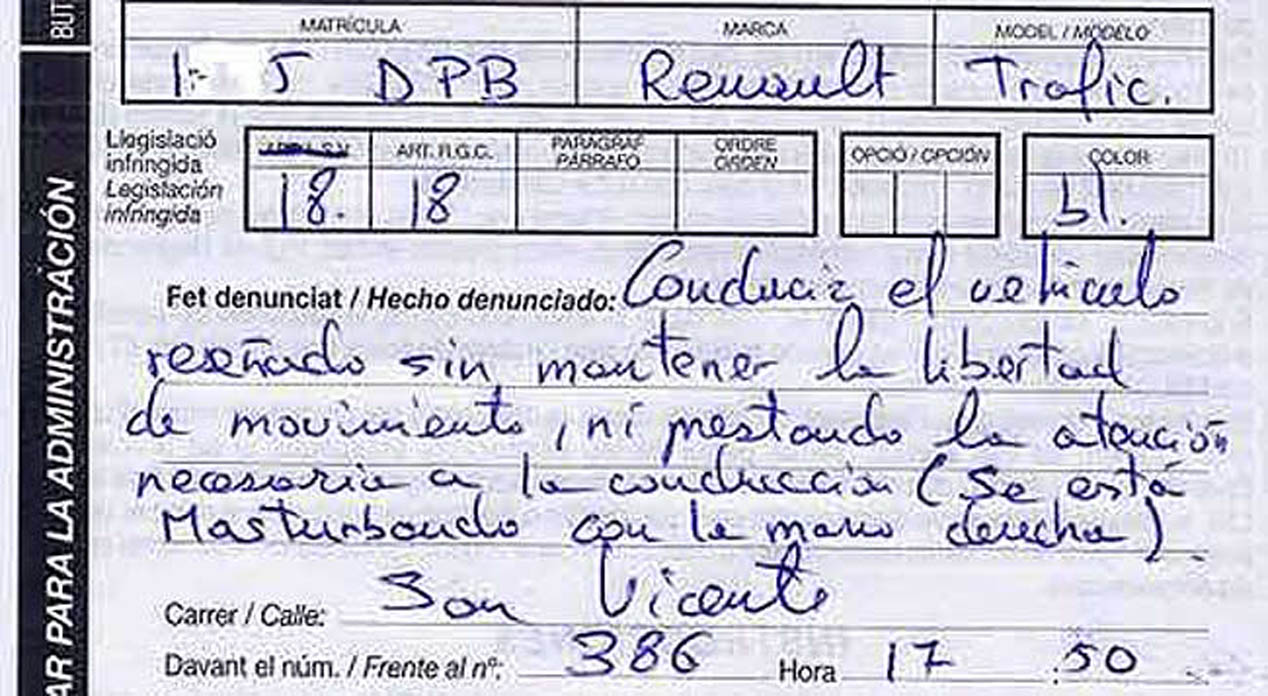 BUT
AR PARA LA ADMINISTRACIÓN
MATRÍCULA MARCA MODEL / MODELO
DPB Renault Trafic.
Llegislació infringida
Legislación infringida
ART. R.G.C. PARÀGRAF PÁRRAFO ORDRE ORDEN OPCIÓ / OPCIÓN COLOR
18. 18 bl.
Fet denunciat / Hecho denunciado: Conducir el vehiculo
reseñado sin mantener la libertad
de movimiento, ni prestando la atención
necesaria a la conducción (Se está
Masturbando con la mano derecha)
Carrer / Calle: San Vicente
Davant el núm. / Frente al nº: 386 Hora 17 50